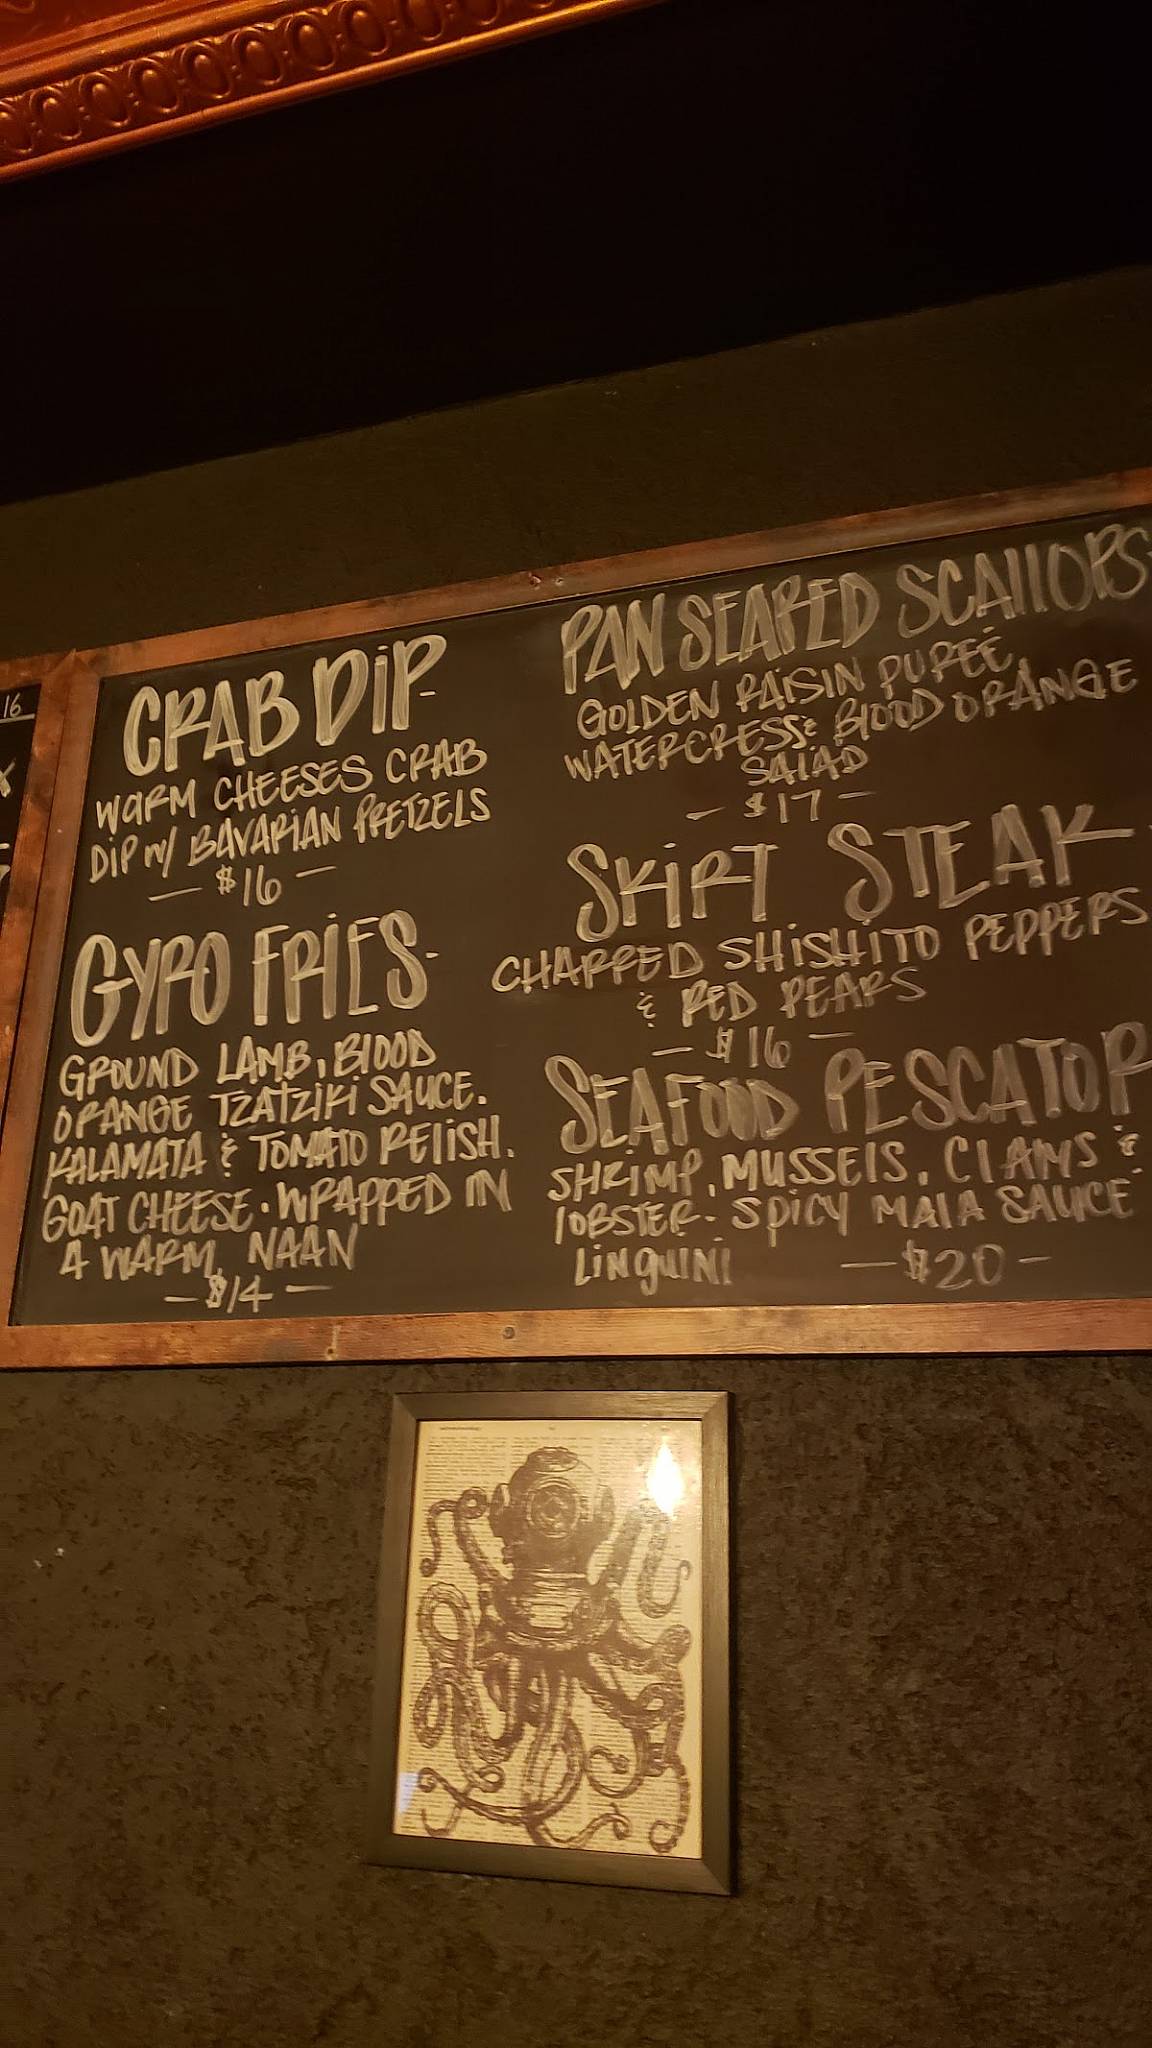 16
CRAB DIP-
WARM CHEESES CRAB
DIP w/ BAVARIAN PRETZELS
— $16 —
GYRO FRIES-
GROUND LAMB, BLOOD
ORANGE TZATZIKI SAUCE.
KALAMATA & TOMATO RELISH.
GOAT CHEESE. WRAPPED IN
A WARM NAAN
— $14 —
PAN SEARED SCALLOPS-
GOLDEN RAISIN PURÉE,
WATERCRESS & BLOOD ORANGE
SALAD
— $17 —
SKIRT STEAK-
CHARRED SHISHITO PEPPERS
& RED PEARS
— $16 —
SEAFOOD PESCATOR
SHRIMP, MUSSELS, CLAMS &
LOBSTER. SPICY MALA SAUCE
LINGUINI — $20 —